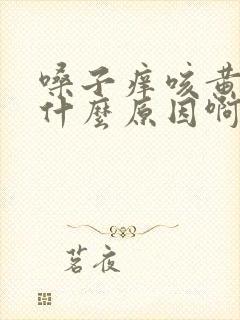 嗓子痒咳黄
什麼原因啊
茗夜